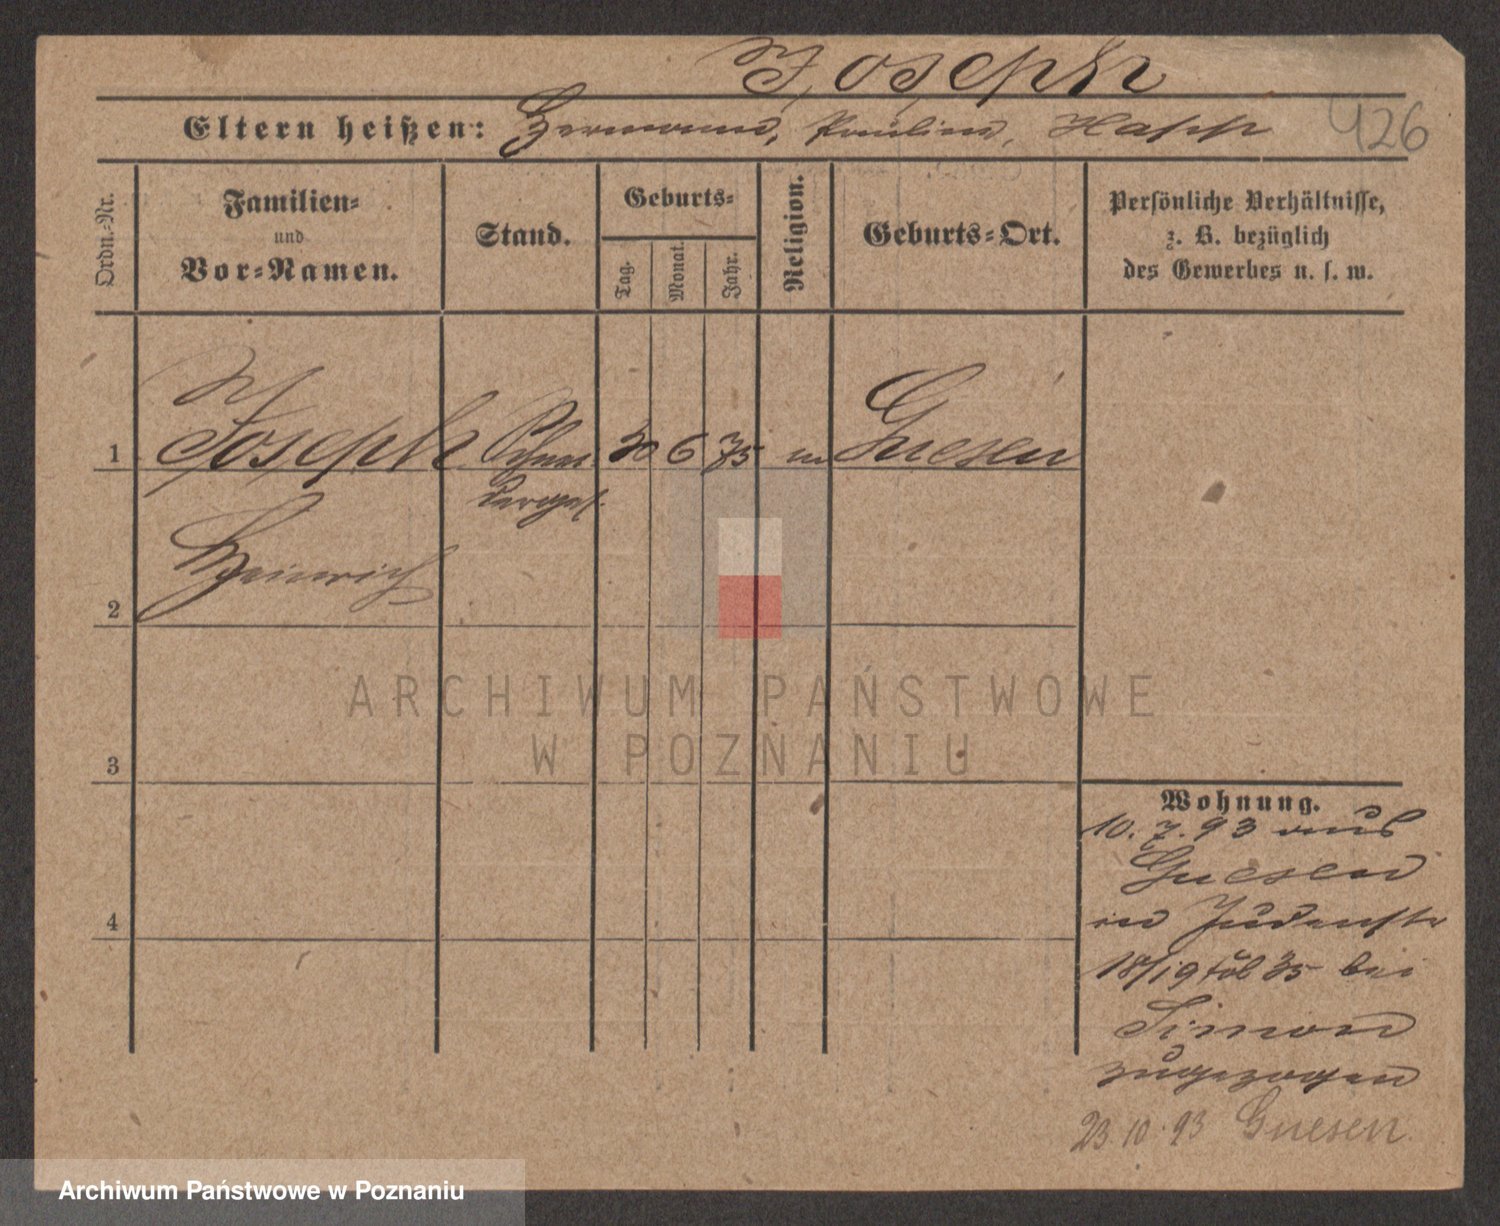 Joseph
426
Eltern heißen: Hermann, Pauline,
Ordn.-Nr.
Familien-
und
Vor-Namen.
Stand.
Geburts-
Tag.
Monat.
Jahr.
Religion.
Geburts-Ort.
Persönliche Verhältnisse,
z. B. bezüglich
des Gewerbes u. s. w.
1 Joseph Schnei 30 6 75 m Gnesen
derges.
2 Heinrich
3
4
ARCHIWUM PAŃSTWOWE
W POZNANIU
Wohnung.
10.7.93 aus
Gnesen
in Judenstr
18/19 bei
Simon
zugezogen
23.10.93 Gnesen
Archiwum Państwowe w Poznaniu